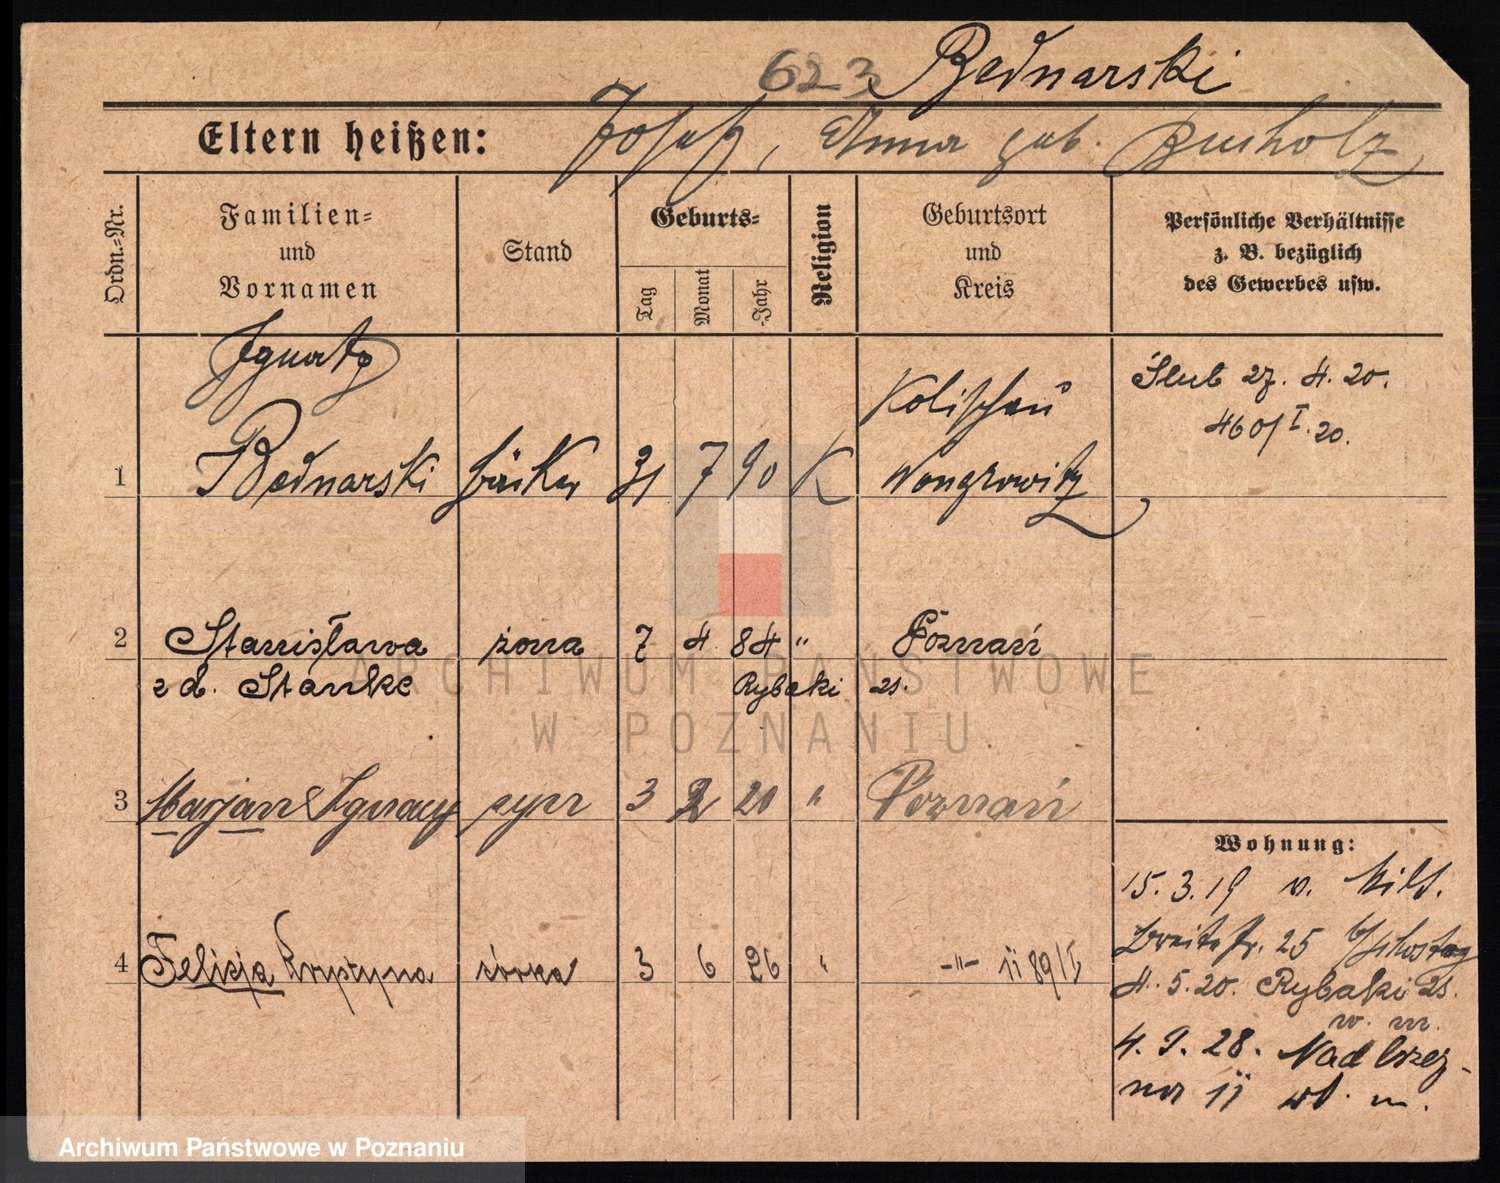 623 Bednarski
Eltern heißen: Josef, Anna geb. Bucholz
Ordn.-Nr.
Familien-
und
Vornamen
Stand
Geburts-
Tag
Monat
-Jahr
Religion
Geburtsort
und
Kreis
Persönliche Verhältnisse
z. B. bezüglich
des Gewerbes usw.
Ignatz
Kolischau
Ślub 27. 4. 20.
460/I. 20.
1 Bednarski Bäcker 31 7 90 K Wongrowitz
2 Stanisława żona 7 4 84 " Poznań
z d. Stanke Rybaki 21.
ARCHIWUM PAŃSTWOWE
W POZNANIU
3 Marjan Ignacy syn 3 2 20 " Poznań
Wohnung:
15. 3. 19 v. Milt.
4 Felicja Krystyna córka 3 6 26 " -"- 1189/I
Breitestr. 25 b/
4. 5. 20. Rybaki 21.
w. m.
4. 9. 28. Nadbrzeż-
na 11 wł. m.
Archiwum Państwowe w Poznaniu